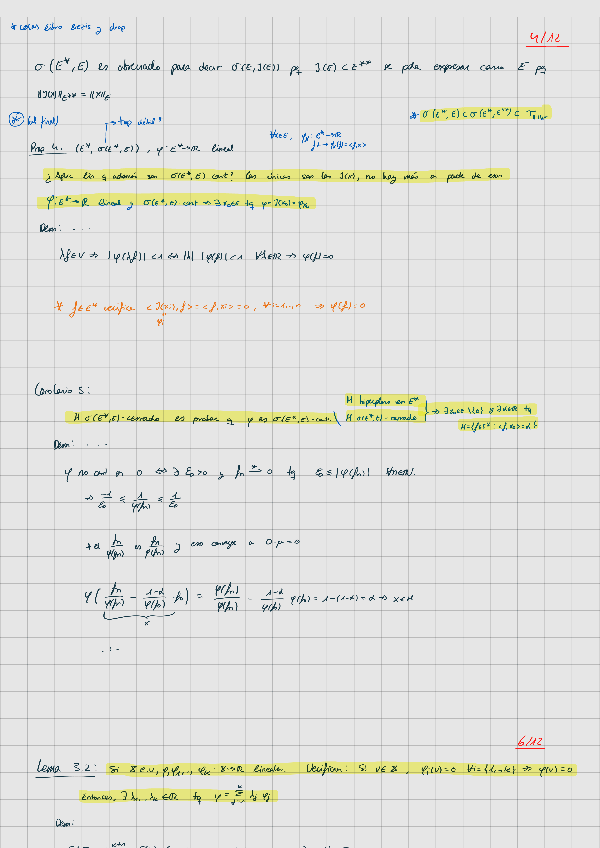 4/12
σ(E*, E) es observado para decir σ(E, J(E)) pq J(E) ⊂ E** se puede expresar como E pq
‖J(x)‖_E** = ‖x‖_E
σ(E*, E) ⊂ σ(E*, E**) ⊂
(al final)
→ top débil*
∀x∈E, φ_x: E* → ℝ
f → φ_x(f) = <f, x>
Prop 4. (E*, σ(E*, E)), φ: E* → ℝ lineal
¿ Aplic lin q además son σ(E*, E) cont? Las únicas son las J(x), no hay más a parte de esas
φ: E* → ℝ lineal y σ(E*, E) cont ⇒ ∃ x₀∈E tq φ = J(x₀) = φ_x₀
Dem: ...
λf∈V ⇒ |φ(λf)| < 1 ⇔ |λ| |φ(f)| < 1 ∀λ∈ℝ ⇒ φ(f) = 0
* f∈E* verifica <J(x_i), f> = <f, x_i> = 0, ∀i=1,..,n ⇒ φ(f) = 0
φ_i
Corolario 5:
H σ(E*, E)-cerrado es probar q φ es σ(E*, E)-cont.
H hiperplano en E*
H σ(E*, E)-cerrado
⇒ ∃ x₀∈E \ {0} y ∃ α∈ℝ tq
H = {f∈E* : <f, x₀> = α}
Dem: ...
φ no cont en 0 ⇔ ∃ ε₀ > 0 y f_n →* 0 tq ε₀ ≤ |φ(f_n)| ∀n∈ℕ.
⇒ -1/ε₀ ≤ 1/φ(f_n) ≤ 1/ε₀
f_n/φ(f_n) es f_n/φ(f_n) y eso converge a 0·μ = 0
φ( f_n/φ(f_n) - (1-α)/φ(f₀) · f₀ ) = φ(f_n)/φ(f_n) - (1-α)/φ(f₀) φ(f₀) = 1 - (1-α) = α ⇒ x∈H
x
...
6/12
Lema 3.2: Si X e.v, φ, φ₁, .., φ_k : X → ℝ lineales. Verifican: Si v∈X, φ_i(v) = 0 ∀i = {1, .., k} ⇒ φ(v) = 0
Entonces, ∃ λ₁, .., λ_k ∈ℝ tq φ = Σ λ_j φ_j
Dem: